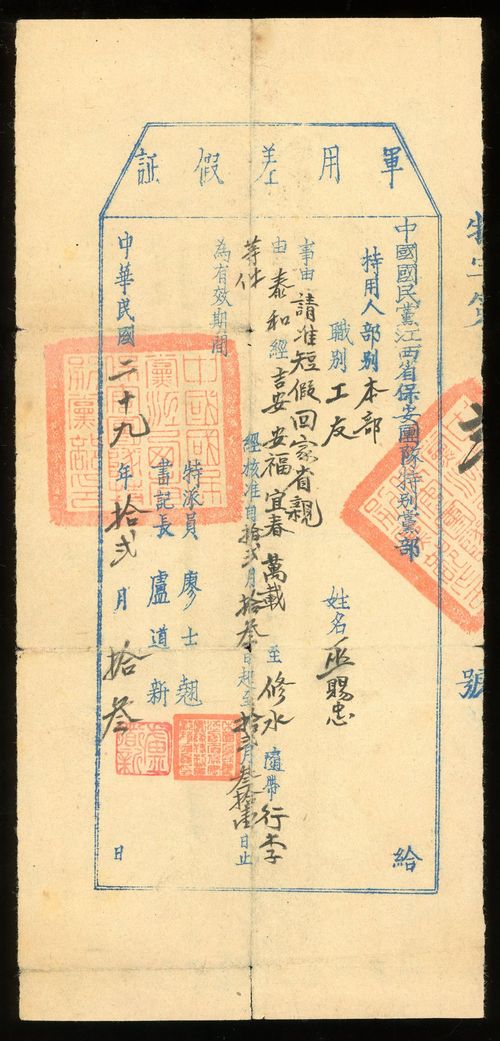 軍用差假証
中國國民黨江西省保安團隊特别黨部 給
持用人部别 本部
職别 工友 姓名 巫賜忠
事由 請准短假回家省親
由 泰和 經 吉安 安福 宜春 萬載 至 修水 隨帶 行李
等件 經核准自拾弍月拾叁日起至拾弍月叁拾壹日止
為有效期間
特派員 廖士翹
書記長 盧道新
中華民國二十九年拾弍月拾叁日
號